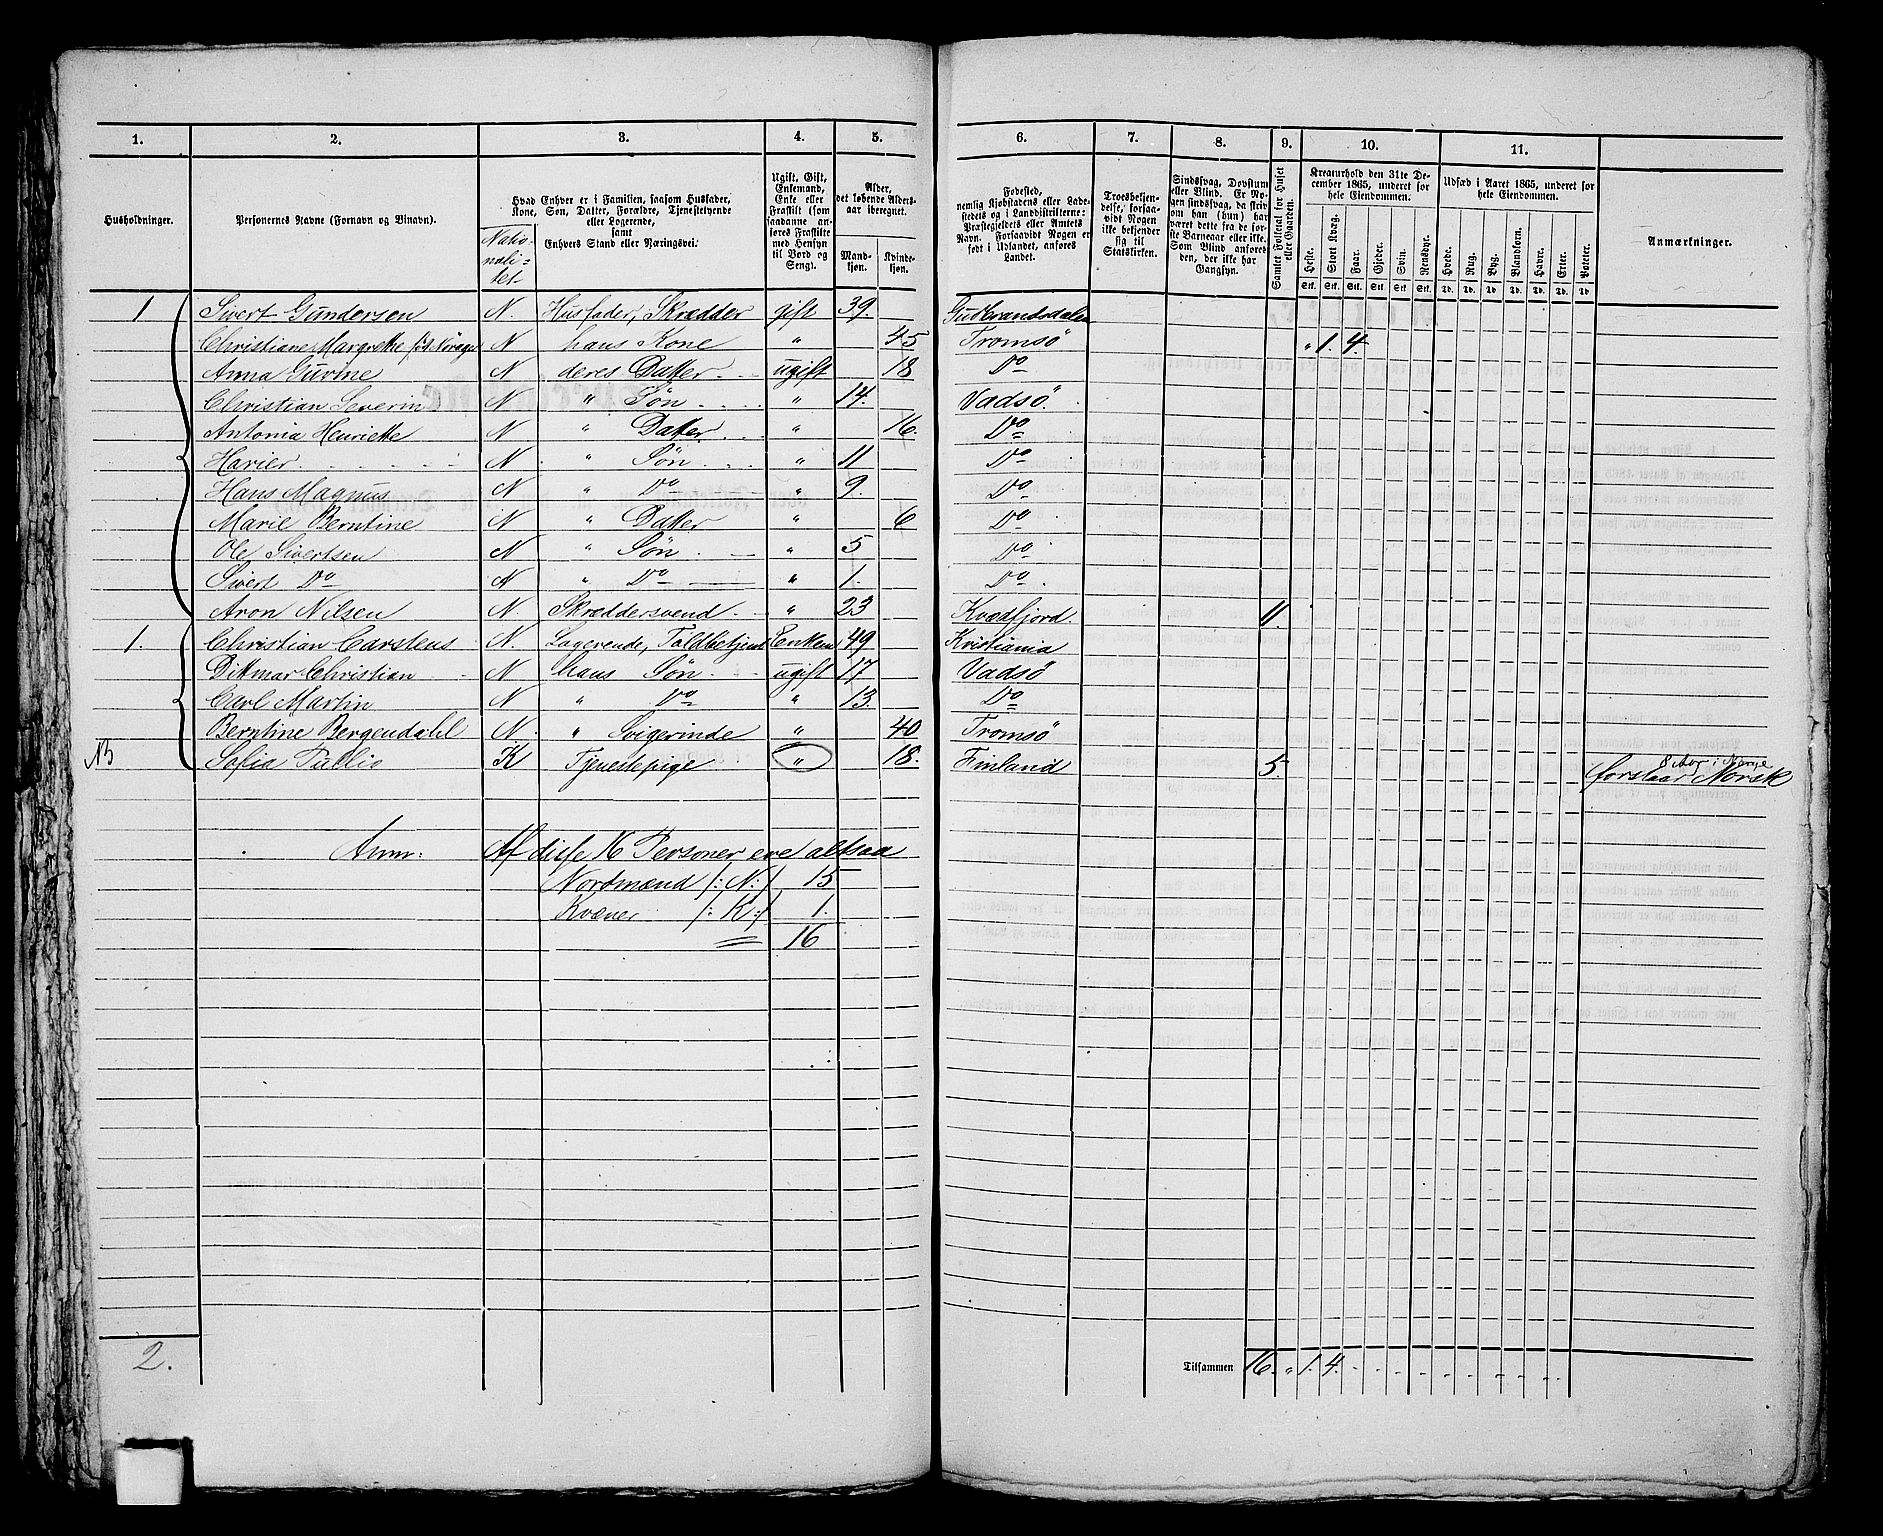 1. 2. 3. 4. 5. 6. 7. 8. 9. 10. 11.
Husholdninger.
Personernes Navne (Fornavn og Binavn).
Hvad Enhver er i Familien, saasom Husfader, Kone, Søn, Datter, Forældre, Tjenestetyende eller Logerende, samt Enhvers Stand eller Næringsvei.
Natio-
nali-
tet
Ugift, Gift, Enkemand, Enke eller Fraskilt (som saadanne anføres Fraskilte med Hensyn til Bord og Seng).
Alder, det løbende Alders-aar iberegnet.
Mand-kjøn. Kvinde-kjøn.
Fødested, nemlig Kjøbstadens eller Ladestedets og i Landdistrikterne: Præstegjeldets eller Amtets Navn. Forsaavidt Nogen er født i Udlandet, anføres Landet.
Troesbekjendelse, forsaavidt Nogen ikke bekjender sig til Statskirken.
Sindssvag, Døvstum eller Blind. Er Nogen sindssvag, da skrives om han (hun) har været dette fra de første Barneaar eller ikke. Som Blind anføres den, der ikke har Gangsyn.
Samlet Folketal for Huset eller Gaarden.
Kreaturhold den 31te December 1865, underet for hele Eiendommen.
Heste. Stort Kvæg. Faar. Gjeder. Svin. Rensdyr.
Stk. Stk. Stk. Stk. Stk. Stk.
Udsæd i Aaret 1865, underet for hele Eiendommen.
Hvede. Rug. Byg. Blandkorn. Havre. Erter. Poteter.
Td. Td. Td. Td. Td. Td. Td.
Anmærkninger.
1 Sivert Gundersen N. Husfader, Skrædder gift 39. Gudbrandsdalen
Christiane Margrethe N hans Kone " 45 Tromsö " 1. 4.
Anna Gurine N deres Datter ugift 18 Do
Christian Severin N " Søn " 14. Vadsö.
Antonia Henriette N " Datter " 16. Do
Harier N " Søn " 11 Do
Hans Magnus N " Do " 9. Do
Marie Berntine N " Datter " 6 Do
Ole Sivertsen N " Søn " 5 Do
Sivert Do N " Do " 1. Do
Aron Nilsen N. Skræddersvend " 23 Kvædfjord 11
1. Christian Carstens N. Logerende, Toldbetjent Enkem 49 Kristiania
Ditmar Christian N hans Søn ugift 17 Vadsö
Carl Martin N " Do " 13. Do
Berntine Bergendahl N. " Svigerinde " 40 Tromsö
NB Sofia Pullio K Tjenestepige " 18. Finland 5 8 Aar i Norge
forstaar Norsk
Anm: Af disse 16 Personer ere altsaa
Nordmænd /: N:/ 15
Kvæner /: K:/ 1.
16
2. Tilsammen 16. " 1. 4.